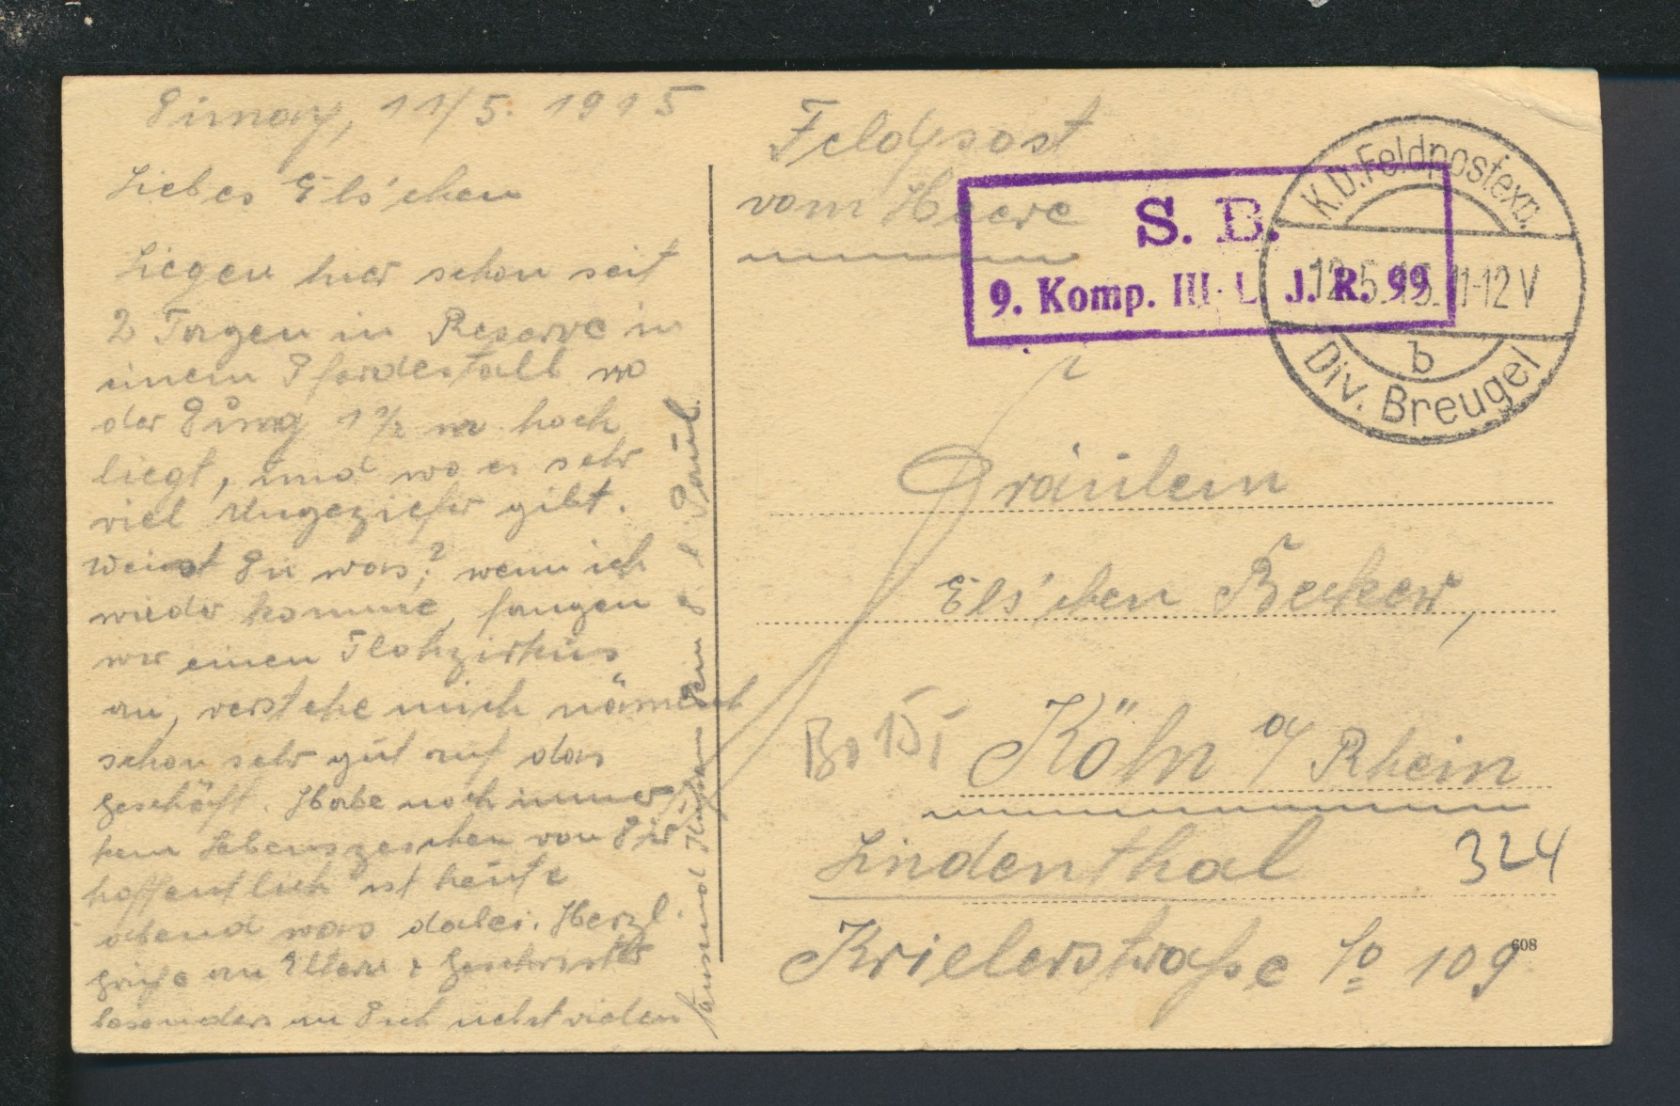 11/5. 1915
Liebes Els'chen
Liegen hier schon seit
2 Tagen in Reserve in
einem Pferdestall wo
der Dung 1 1/2 m hoch
liegt, und wo es sehr
viel Ungeziefer gibt.
Weisst Du was? wenn ich
wieder komme, fangen
wir einen Flohzirkus
an, verstehe mich nämlich
schon sehr gut auf das
Geschäft. Habe noch immer
kein Lebenszeichen von Dir
hoffentlich ist heute
abend was dabei. Herzl.
Grüße an Eltern & Geschwister
besonders an Dich nebst vielen
tausend Küssen Dein Paul.
Feldpost
vom Heere
S. B.
9. Komp. III. L. J. R. 99
K.D. Feldpostexp.
12.5.15. 11-12 V
b
Div. Breugel
Fräulein
Els'chen Becker,
Köln a/ Rhein
Lindenthal
324
Krielerstraße No 109
608